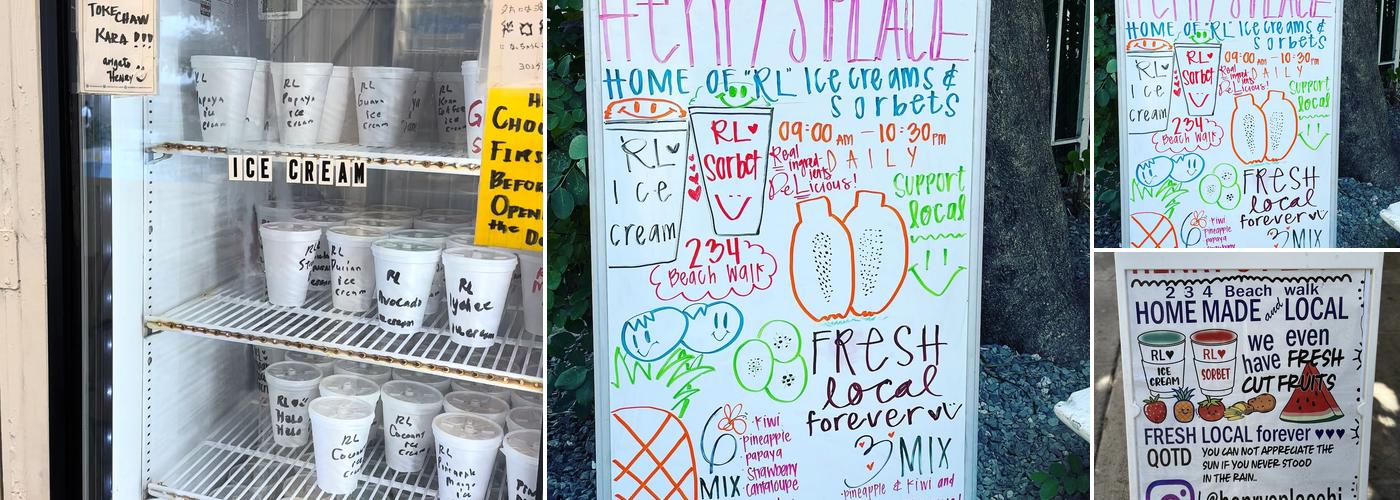 TOKE CHAW
KARA !!!
angelo
Henry
RL
Papaya
ice
cream
RL
Guava
ice
cream
RL
Kona
Coffee
ice
cream
ICE CREAM
CHOO
FIRS
BEFOR
OPEN
the Do
RL
Durian
ice
cream
RL
Avocado
icecream
RL
lychee
icecream
RL
Halo
Halo
RL
Coconut
ice
cream
RL
Pineapple
HENRY'S PLACE
HOME OF "RL" Ice creams &
sorbets
RL
Ice
cream
RL
Sorbet
09:00 AM — 10:30 PM
DAILY
Real
ingredients
DeLicious!
support
local
234
Beach Walk
FResH
local
forever
6
MIX
· kiwi
· pineapple
· papaya
· strawberry
· cantaloupe
3 MIX
· pineapple & kiwi and
HOME OF "RL" Ice creams &
sorbets
RL
Ice
cream
RL
Sorbet
09:00 AM — 10:30 PM
DAILY
Real
ingredients
DeLicious!
support
local
234
Beach Walk
FRESH
local
forever
6
· kiwi
pineapple
papaya
strawberry
3 MIX
234 Beach walk
HOME MADE and LOCAL
RL♥
ICE
CREAM
RL♥
SORBET
we even
have FRESH
CUT FRUITS
FRESH LOCAL forever ♥♥♥
QOTD YOU CAN NOT APPRECIATE THE
SUN IF YOU NEVER STOOD
IN THE RAIN..